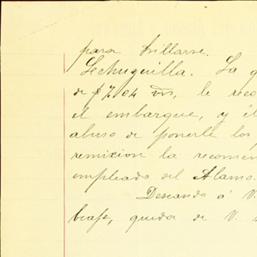 para trillarse.
Lechuguilla. La q
de $7.04 cvs, le rec
el embarque, y el
abuso de ponerle los
remision la recomen
empleado del Alamo.
Deseando á V.
beafe, queda de V. s